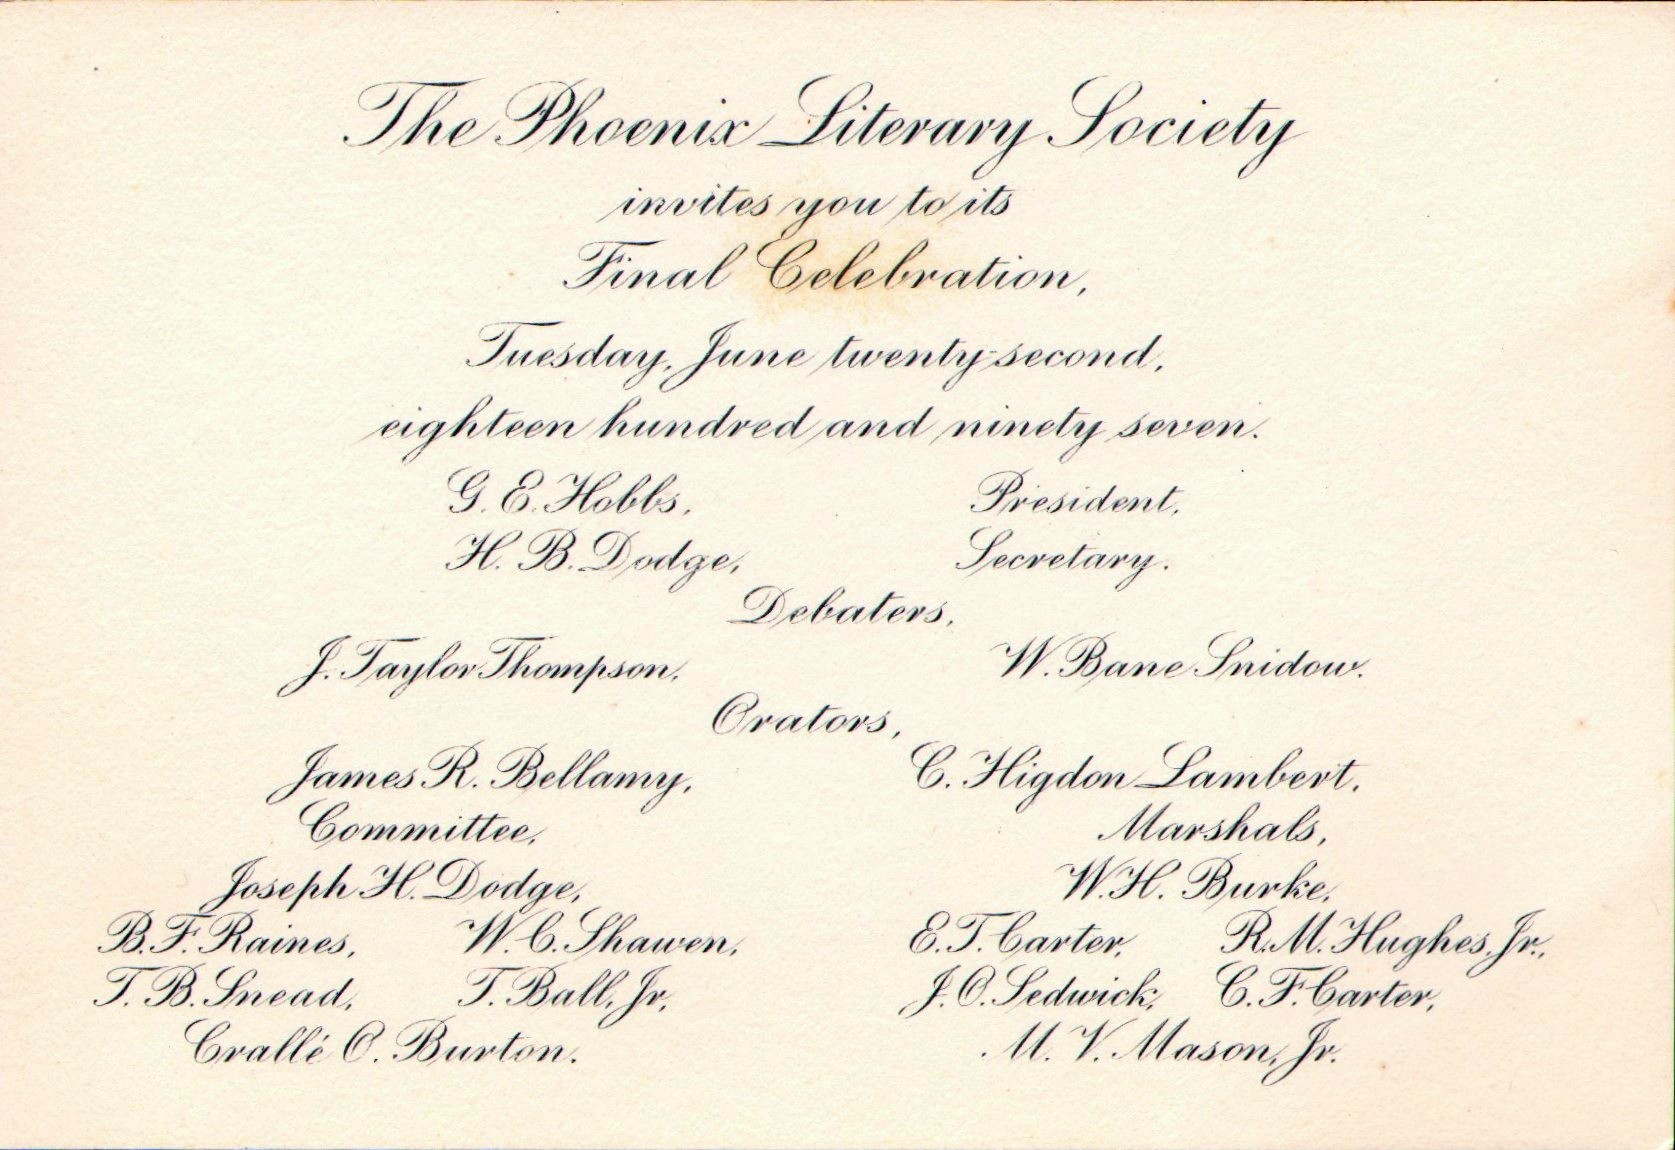 The Phoenix Literary Society
invites you to its
Final Celebration,
Tuesday, June twenty-second,
eighteen hundred and ninety seven.
G. E. Hobbs, President,
H. B. Dodge, Secretary.
Debaters,
J. Taylor Thompson, W. Bane Snidow.
Orators,
James R. Bellamy, C. Higdon Lambert,
Committee, Marshals,
Joseph H. Dodge, W. H. Burke,
B. F. Raines, W. C. Shawen, E. T. Carter, R. M. Hughes, Jr.,
T. B. Snead, T. Ball, Jr, J. O. Sedwick, C. F. Carter,
Crallé O. Burton. M. V. Mason, Jr.